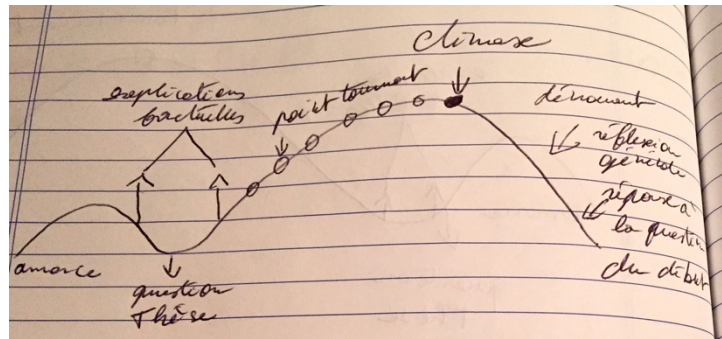 Climax
explications
factuelles
point tournant
dénouement
réflexion
générale
réponse à
la question
du début
amorce
question
Thèse